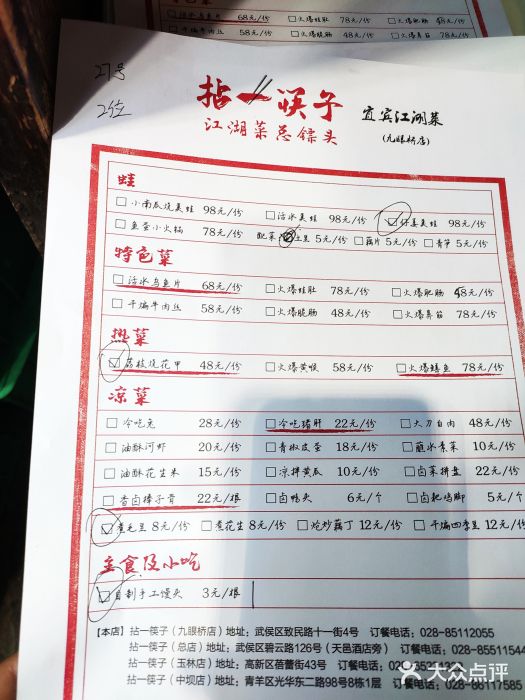 活水乌鱼片 68元/份 火爆蛙肚 78元/份 火爆肥肠 48元/份
干煸牛肉丝 58元/份 火爆脆肠 48元/份 火爆鼻筋 78元/份
27号
2位
拈一筷子 宜宾江湖菜
江湖菜总镖头 (九眼桥店)
蛙
小南瓜烧美蛙 98元/份 活水美蛙 98元/份 仔姜美蛙 98元/份
鱼蛋小火锅 78元/份 配菜 土豆 5元/份 藕片 5元/份 青笋 5元/份
特色菜
活水乌鱼片 68元/份 火爆蛙肚 78元/份 火爆肥肠 48元/份
干煸牛肉丝 58元/份 火爆脆肠 48元/份 火爆鼻筋 78元/份
热菜
荔枝烧花甲 48元/份 火爆黄喉 58元/份 火爆鳝鱼 78元/份
凉菜
冷吃兔 28元/份 冷吃猪肝 22元/份 大刀白肉 48元/份
油酥河虾 20元/份 青椒皮蛋 18元/份 蘸水素菜 10元/份
油酥花生米 15元/份 凉拌黄瓜 10元/份 卤菜拼盘 22元/份
香卤棒子骨 22元/根 卤鸭头 6元/个 卤把鸡脚 5元/个
煮毛豆 8元/份 煮花生 8元/份 炝炒藕丁 12元/份 干煸四季豆 12元/份
主食及小吃
自制手工馒头 3元/根
【本店】 拈一筷子(九眼桥店)地址:武侯区致民路十一街4号 订餐电话:028-85112055
拈一筷子(总店)地址:武侯区碧云路126号(天邑酒店旁) 订餐电话:028-85511544
拈一筷子(玉林店)地址:高新区蓓蕾街43号 订餐电话:028-
拈一筷子(中坝店)地址:青羊区光华东二路98号8栋1层 订餐电话:028-
大众点评